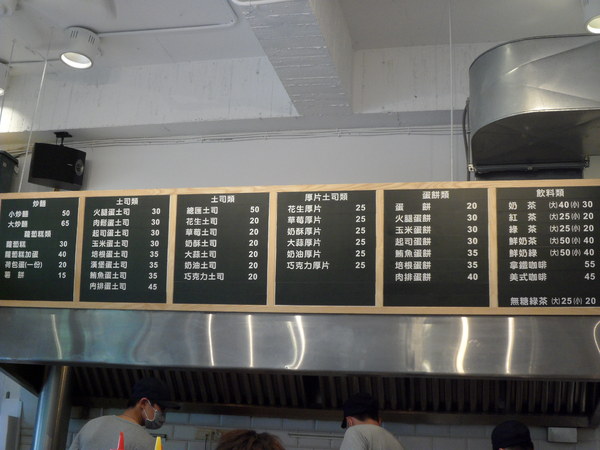 炒麵
小炒麵 50
大炒麵 65
蘿蔔糕類
蘿蔔糕 30
蘿蔔糕加蛋 40
荷包蛋(一份) 20
薯餅 15
土司類
火腿蛋土司 30
肉鬆蛋土司 30
起司蛋土司 30
玉米蛋土司 30
培根蛋土司 35
漢堡蛋土司 35
鮪魚蛋土司 35
肉排蛋土司 45
土司類
總匯土司 50
花生土司 20
草莓土司 20
奶酥土司 20
大蒜土司 20
奶油土司 20
巧克力土司 20
厚片土司類
花生厚片 25
草莓厚片 25
奶酥厚片 25
大蒜厚片 25
奶油厚片 25
巧克力厚片 25
蛋餅類
蛋餅 20
火腿蛋餅 30
玉米蛋餅 30
起司蛋餅 30
鮪魚蛋餅 35
培根蛋餅 35
肉排蛋餅 40
飲料類
奶茶 (大)40(小)30
紅茶 (大)25(小)20
綠茶 (大)25(小)20
鮮奶茶 (大)50(小)40
鮮奶綠 (大)50(小)40
拿鐵咖啡 55
美式咖啡 45
無糖綠茶 (大)25(小)20